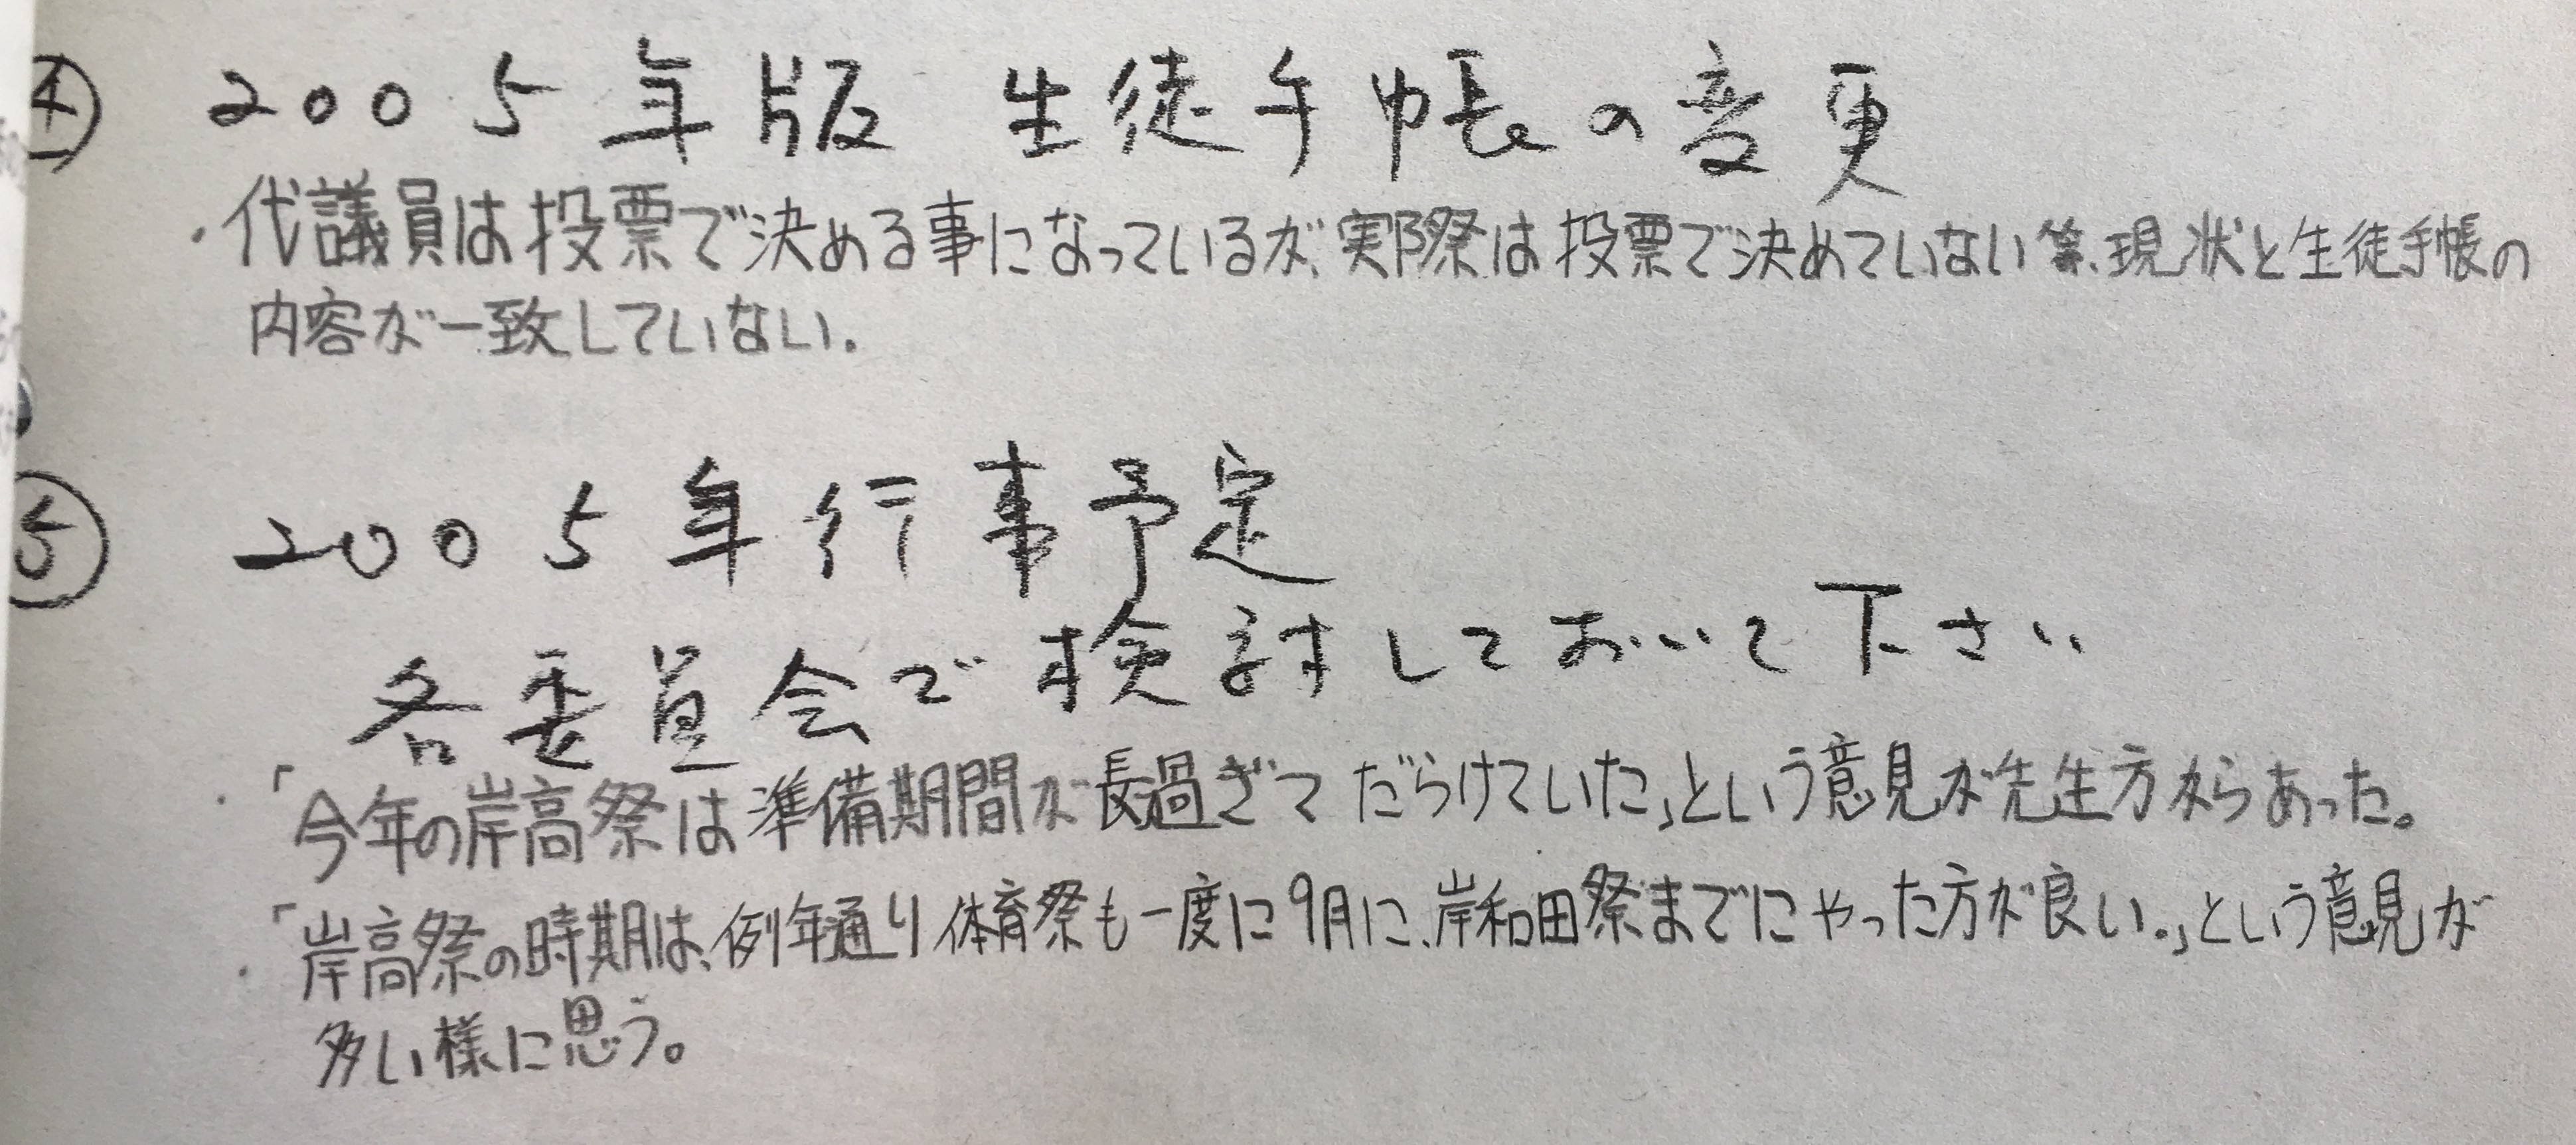 ④ 2005年版 生徒手帳の変更
・代議員は投票で決める事になっているが、実際は投票で決めていない等、現状と生徒手帳の
内容が一致していない.
⑤ 2005年行事予定
各委員会で検討しておいて下さい
・「今年の岸高祭は準備期間が長過ぎてだらけていた」という意見が先生方からあった。
・「岸高祭の時期は、例年通り体育祭も一度に9月に、岸和田祭までにやった方が良い.」という意見が
多い様に思う。